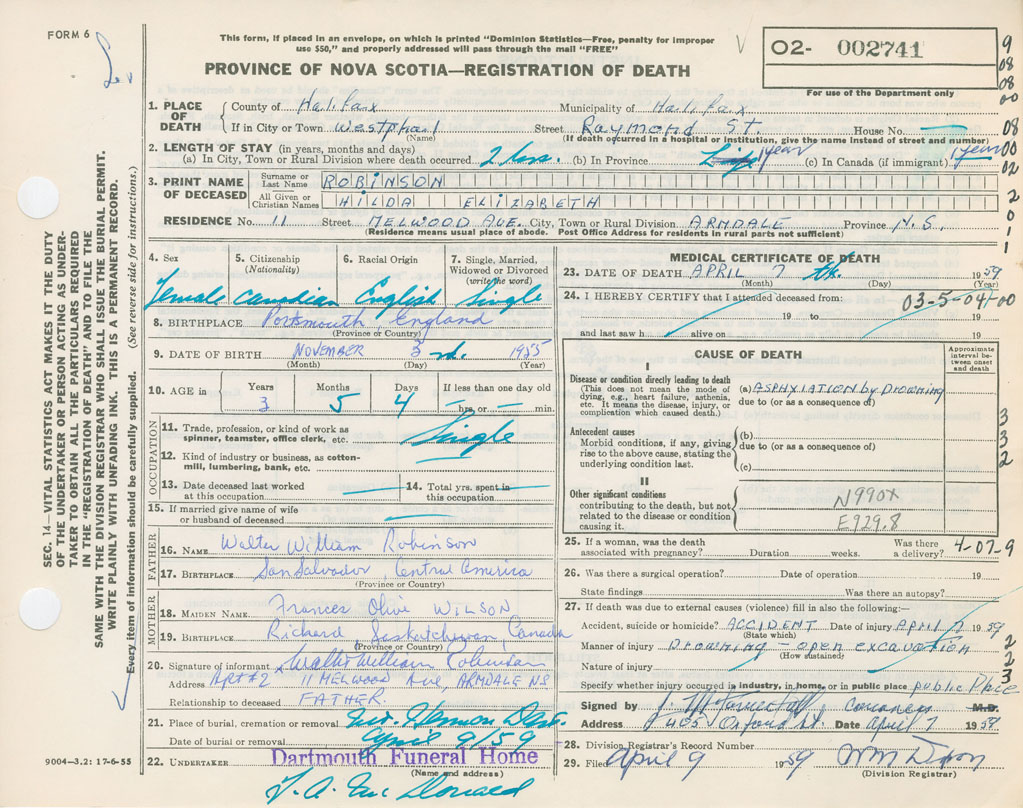 FORM 6
This form, if placed in an envelope, on which is printed "Dominion Statistics—Free, penalty for improper
use $50," and properly addressed will pass through the mail "FREE"
PROVINCE OF NOVA SCOTIA—REGISTRATION OF DEATH
02- 002741
For use of the Department only
9
08
08
00
08
00
02
2
0
1
1
SEC. 14—VITAL STATISTICS ACT MAKES IT THE DUTY
OF THE UNDERTAKER OR PERSON ACTING AS UNDER-
TAKER TO OBTAIN ALL THE PARTICULARS REQUIRED
IN THE "REGISTRATION OF DEATH" AND TO FILE THE
SAME WITH THE DIVISION REGISTRAR WHO SHALL ISSUE THE BURIAL PERMIT.
WRITE PLAINLY WITH UNFADING INK. THIS IS A PERMANENT RECORD.
Every item of information should be carefully supplied. (See reverse side for instructions.)
1. PLACE OF DEATH County of Halifax Municipality of Halifax
If in City or Town Westphal Street Raymond St. House No.
(Name) (If death occurred in a hospital or institution, give the name instead of street and number)
2. LENGTH OF STAY (in years, months and days)
(a) In City, Town or Rural Division where death occurred 2 hrs. (b) In Province 1 year (c) In Canada (if immigrant) 1 year
3. PRINT NAME OF DECEASED Surname or Last Name ROBINSON
All Given or Christian Names HILDA ELIZABETH
RESIDENCE No. 11 Street MELWOOD AVE. City, Town or Rural Division ARMDALE Province N.S.
(Residence means usual place of abode. Post Office Address for residents in rural parts not sufficient)
4. Sex 5. Citizenship (Nationality) 6. Racial Origin 7. Single, Married, Widowed or Divorced (write the word)
Female Canadian English Single
8. BIRTHPLACE Portsmouth, England
(Province or Country)
9. DATE OF BIRTH NOVEMBER 3 rd. 1955
(Month) (Day) (Year)
10. AGE in Years Months Days If less than one day old
3 5 4 hrs. or min.
OCCUPATION
11. Trade, profession, or kind of work as spinner, teamster, office clerk, etc. Single
12. Kind of industry or business, as cotton-mill, lumbering, bank, etc.
13. Date deceased last worked at this occupation 14. Total yrs. spent in this occupation
15. If married give name of wife or husband of deceased
FATHER
16. NAME Walter William Robinson
17. BIRTHPLACE San Salvador, Central America
(Province or Country)
MOTHER
18. MAIDEN NAME Frances Olive WILSON
19. BIRTHPLACE Richard, Saskatchewan, Canada
(Province or Country)
20. Signature of informant Walter William Robinson
Address Apt #2 11 MELWOOD Ave, ARMDALE NS
Relationship to deceased FATHER.
21. Place of burial, cremation or removal Mt. Hermon Dart.
Date of burial or removal April 9/59
22. UNDERTAKER Dartmouth Funeral Home
(Name and address)
9004—3.2: 17-6-55
MEDICAL CERTIFICATE OF DEATH
23. DATE OF DEATH APRIL 7 th. 1959
(Month) (Day) (Year)
24. I HEREBY CERTIFY that I attended deceased from: 03-5-04-00
19 to 19
and last saw h alive on 19
CAUSE OF DEATH
Approximate interval between onset and death
I
Disease or condition directly leading to death
(This does not mean the mode of dying, e.g., heart failure, asthenia, etc. It means the disease, injury, or complication which caused death.)
(a) ASPHYXIATION by Drowning
due to (or as a consequence of)
Antecedent causes
Morbid conditions, if any, giving rise to the above cause, stating the underlying condition last.
(b)
due to (or as a consequence of)
(c)
II
Other significant conditions contributing to the death, but not related to the disease or condition causing it.
N990X
E929.8
3
3
2
25. If a woman, was the death associated with pregnancy? Duration weeks. Was there a delivery? 4-07-9
26. Was there a surgical operation? Date of operation 19
State findings Was there an autopsy?
27. If death was due to external causes (violence) fill in also the following:—
Accident, suicide or homicide? ACCIDENT Date of injury April 7 1959
(State which)
Manner of injury Drowning - open excavation
(How sustained)
Nature of injury
2
2
3
Specify whether injury occurred in industry, in home, or in public place public Place
Signed by coroner M.D.
Address Oxford St. Date April 7 1959
28. Division Registrar's Record Number
29. Filed April 9 1959
(Division Registrar)